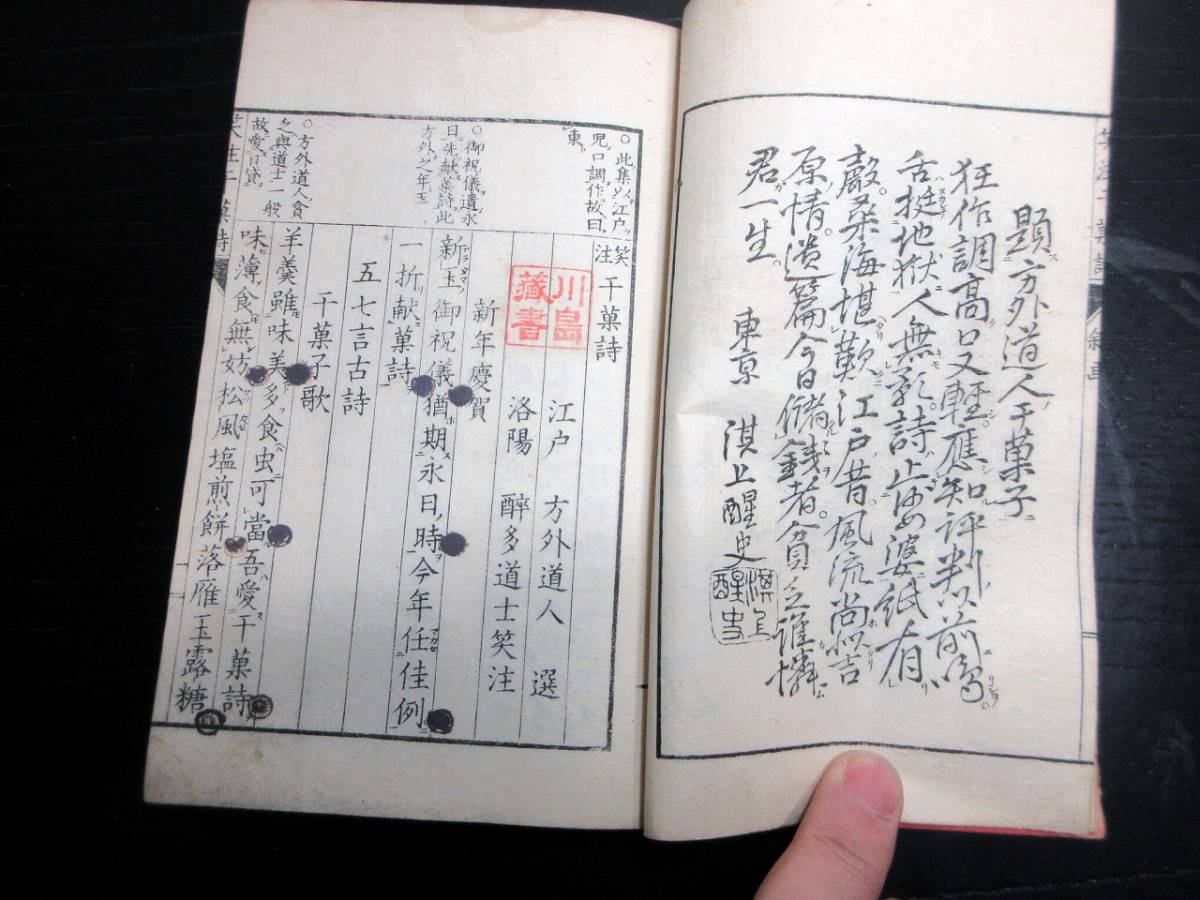 題方外道人干菓子
狂作調高口又軽應知評判以前鳴
舌挺地獄人無影詩止婆婆紙有
聲桑海堪歎江戸昔風流尚似吉
原情遺篇今日儲錢者貧乏誰憐
君一生 東京 淇上醒史
淇上醒史
○此集以江戸
児口調作故曰
東
笑注 干菓詩
江戸 方外道人 選
洛陽 醉多道士笑注
川島
藏書
○御祝儀遺永
日先献菓詩此
方外之年玉
新年慶賀
新玉御祝儀猶期永日時今年任佳例
一折献菓詩
五七言古詩
干菓子歌
○方外道人貧
乏與道士一般
故愛甘貸
羊羹雖味美多食虫可當吾愛干菓詩
味薄食無妨松風塩煎餅落雁玉露糖